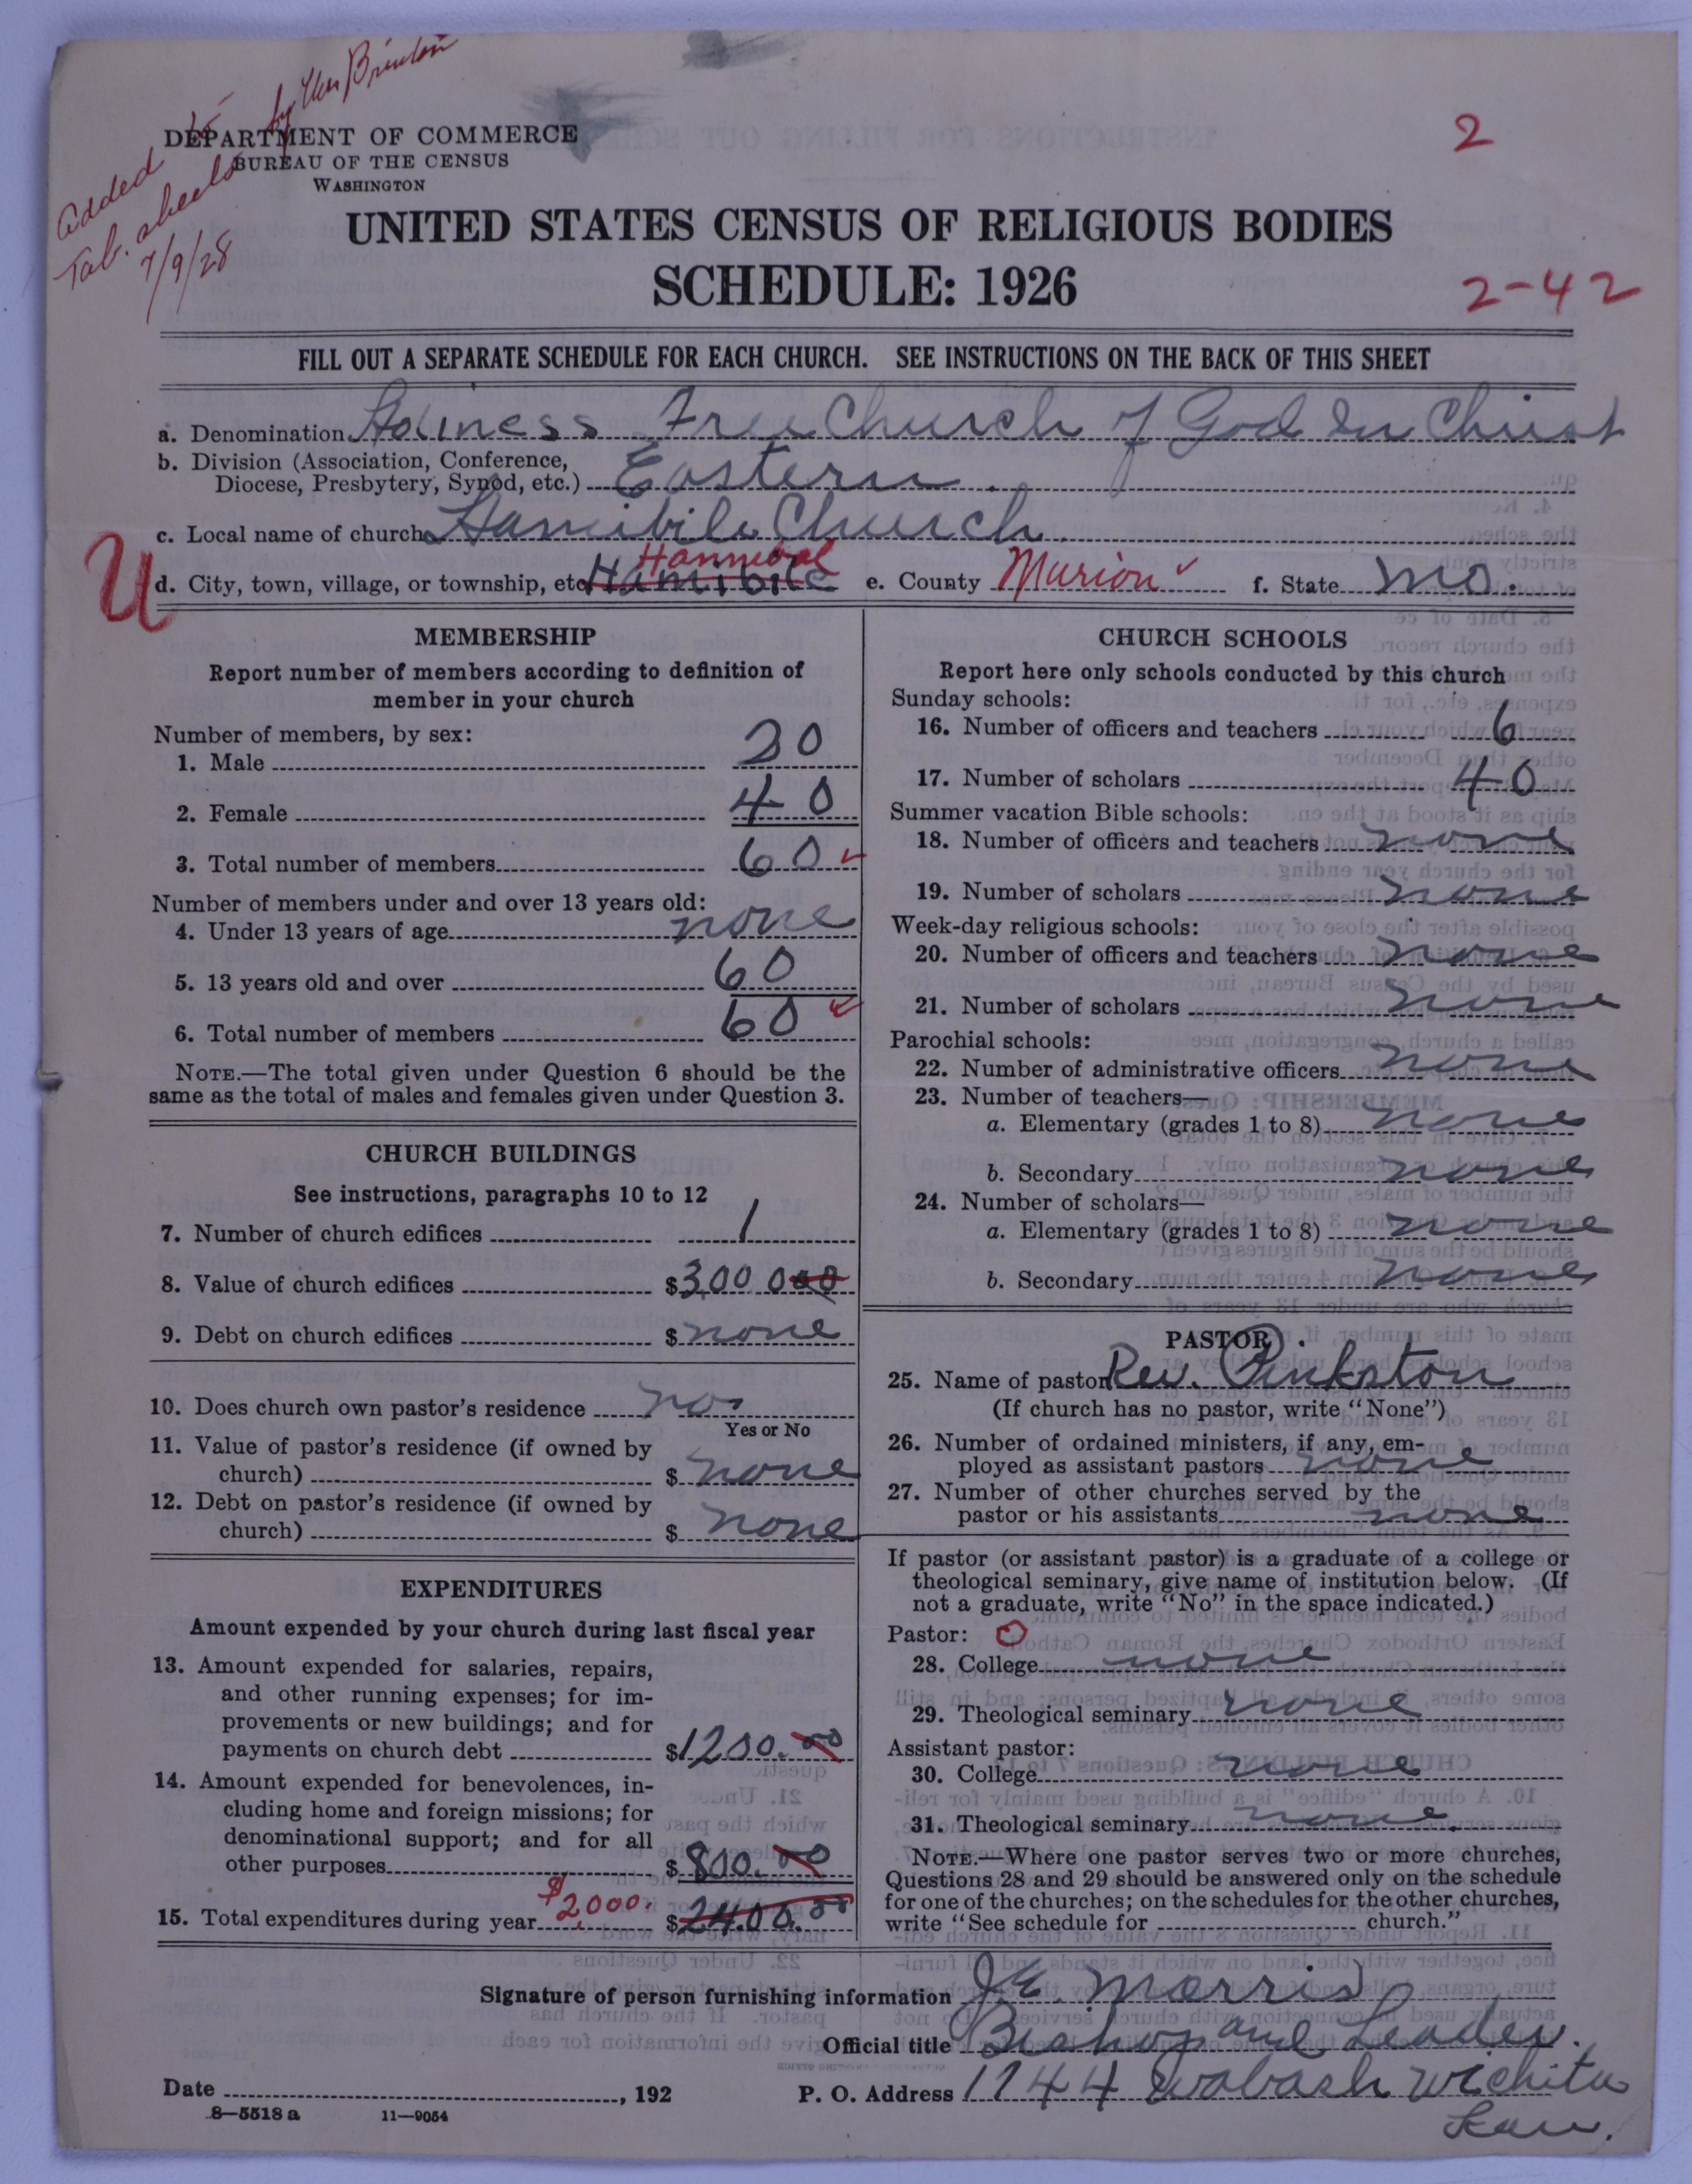 Added 15 by Thos Brinton
Tab. sheets
7/9/28
DEPARTMENT OF COMMERCE
BUREAU OF THE CENSUS
WASHINGTON
2
UNITED STATES CENSUS OF RELIGIOUS BODIES
SCHEDULE: 1926
2-42
FILL OUT A SEPARATE SCHEDULE FOR EACH CHURCH. SEE INSTRUCTIONS ON THE BACK OF THIS SHEET
a. Denomination Holiness Free Church of God In Christ
b. Division (Association, Conference,
Diocese, Presbytery, Synod, etc.) Eastern.
c. Local name of church Hamibile Church.
U
Hannibal
d. City, town, village, or township, etc. Hamibile e. County Marion f. State Mo.
MEMBERSHIP
Report number of members according to definition of
member in your church
Number of members, by sex:
1. Male 20
2. Female 40
3. Total number of members 60
Number of members under and over 13 years old:
4. Under 13 years of age none
5. 13 years old and over 60
6. Total number of members 60
NOTE.—The total given under Question 6 should be the
same as the total of males and females given under Question 3.
CHURCH BUILDINGS
See instructions, paragraphs 10 to 12
7. Number of church edifices 1
8. Value of church edifices $3,000 00
9. Debt on church edifices $ none
10. Does church own pastor's residence no.
Yes or No
11. Value of pastor's residence (if owned by
church) $ none
12. Debt on pastor's residence (if owned by
church) $ none
EXPENDITURES
Amount expended by your church during last fiscal year
13. Amount expended for salaries, repairs,
and other running expenses; for im-
provements or new buildings; and for
payments on church debt $1200.00
14. Amount expended for benevolences, in-
cluding home and foreign missions; for
denominational support; and for all
other purposes $800.00
15. Total expenditures during year $2,000. $2400.00
CHURCH SCHOOLS
Report here only schools conducted by this church
Sunday schools:
16. Number of officers and teachers 6
17. Number of scholars 40
Summer vacation Bible schools:
18. Number of officers and teachers none
19. Number of scholars none
Week-day religious schools:
20. Number of officers and teachers none
21. Number of scholars none
Parochial schools:
22. Number of administrative officers none
23. Number of teachers—
a. Elementary (grades 1 to 8) none
b. Secondary none
24. Number of scholars—
a. Elementary (grades 1 to 8) none
b. Secondary none
PASTOR
25. Name of pastor Rev. Pinkston
(If church has no pastor, write "None")
26. Number of ordained ministers, if any, em-
ployed as assistant pastors none
27. Number of other churches served by the
pastor or his assistants none
If pastor (or assistant pastor) is a graduate of a college or
theological seminary, give name of institution below. (If
not a graduate, write "No" in the space indicated.)
Pastor: O
28. College none
29. Theological seminary none
Assistant pastor:
30. College none
31. Theological seminary none.
NOTE.—Where one pastor serves two or more churches,
Questions 28 and 29 should be answered only on the schedule
for one of the churches; on the schedules for the other churches,
write "See schedule for church."
Signature of person furnishing information J E. Morris
Official title Bishop and Leader.
Date , 192 P. O. Address 1744 Wabash Wichita
Kan.
8—5518 a 11—9054